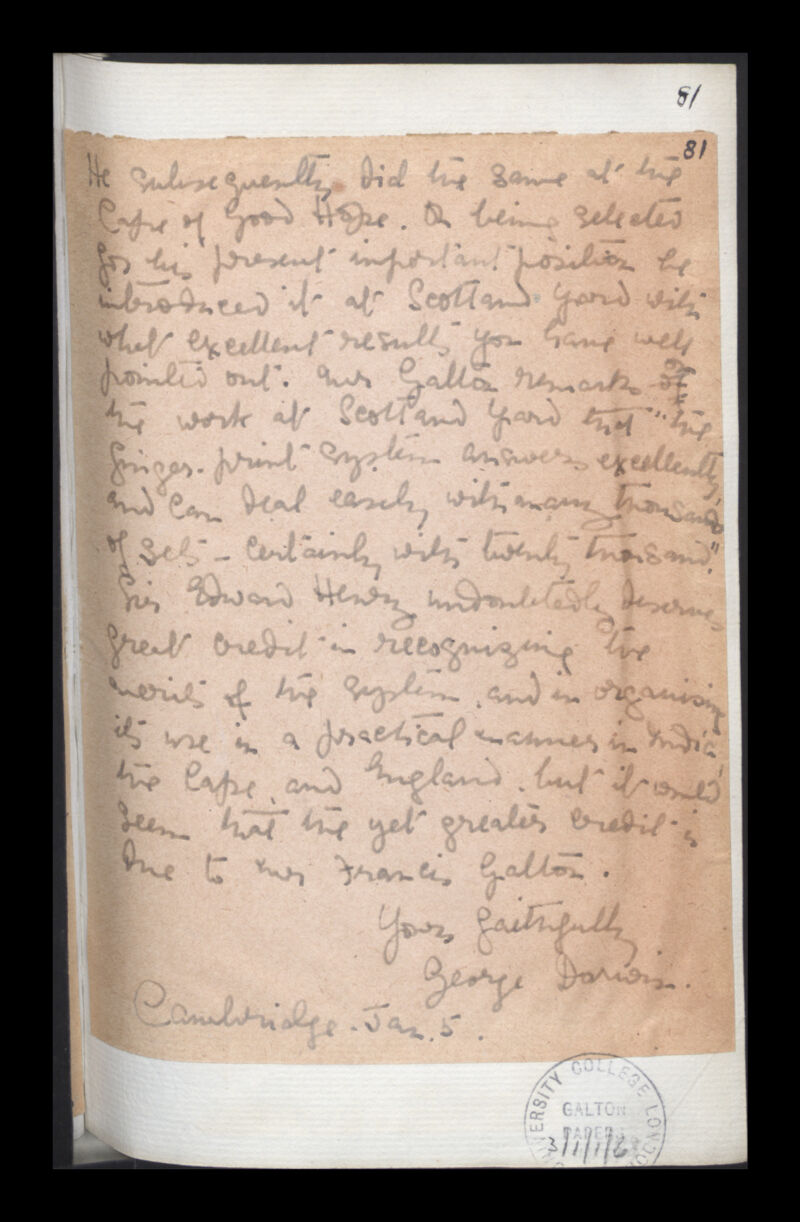 81
81
He subsequently did the same at the
Cape of Good Hope. On being selected
for his present important position he
introduced it at Scotland Yard with
what excellent results you have well
pointed out. Mr Galton remarks of
the work at Scotland Yard that "the
finger-print system answers excellently,
and can deal easily with many thousands
of sets - certainly with twenty thousand."
Sir Edward Henry undoubtedly deserves
great credit in recognizing the
merits of the system, and in organising
its use in a practical manner in India,
the Cape and England, but it would
seem that the yet greater credit is
due to Mr Francis Galton.
Yours faithfully
George Darwin.
Cambridge. Jan. 5.
UNIVERSITY COLLEGE LONDON
GALTON
PAPERS
3/1/1/